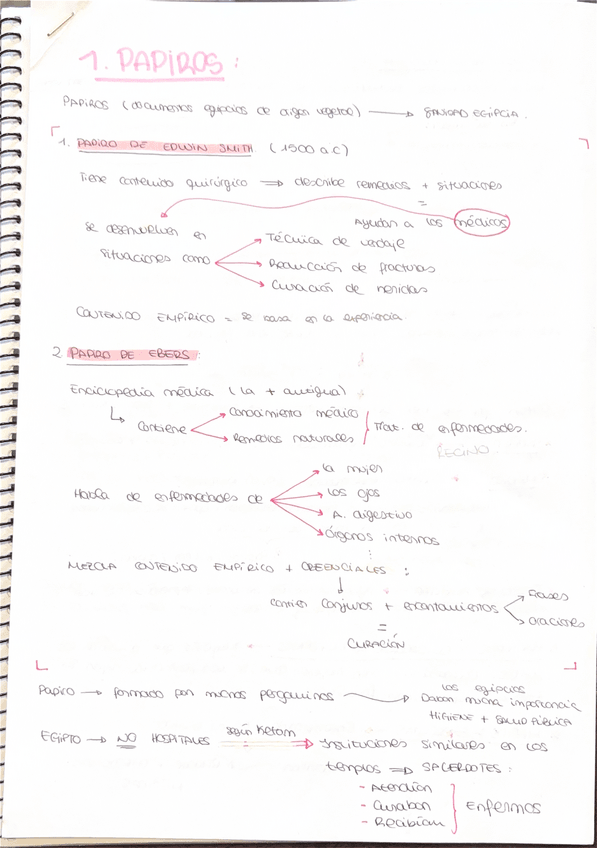 1. PAPIROS:
PAPIROS (documentos egipcios de origen vegetal) → SANIDAD EGIPCIA.
1. PAPIRO DE EDWIN SMITH (1500 a.C)
Tiene contenido quirúrgico ⇒ describe remedios + situaciones
=
Ayudan a los médicos
Se desenvuelven en
situaciones como
→ Técnica de vendaje
→ Reducción de fracturas
→ Curación de heridas
CONTENIDO EMPÍRICO = se basa en la experiencia
2 PAPIRO DE EBERS:
Enciclopedia médica (la + antigua)
↳ Contiene
→ Conocimiento médico
→ Remedios naturales
Trat. de enfermedades.
RECINO.
Habla de enfermedades de
→ la mujer
→ los ojos
→ A. digestivo
→ órganos internos
MEZCLA CONTENIDO EMPÍRICO + CREENCIALES:
↓
contien conjuros + encantamientos
→ Frases
→ oraciones
=
CURACIÓN
Papiro → formado por muchos pergaminos → los egipcios
Daban mucha importancia
HIGIENE + SALUD PÚBLICA
EGIPTO → NO HOSPITALES según Ketom ⇒ Instituciones similares en los
templos ⇒ SACERDOTES:
- Atención
- Curaban
- Recibían
Enfermos